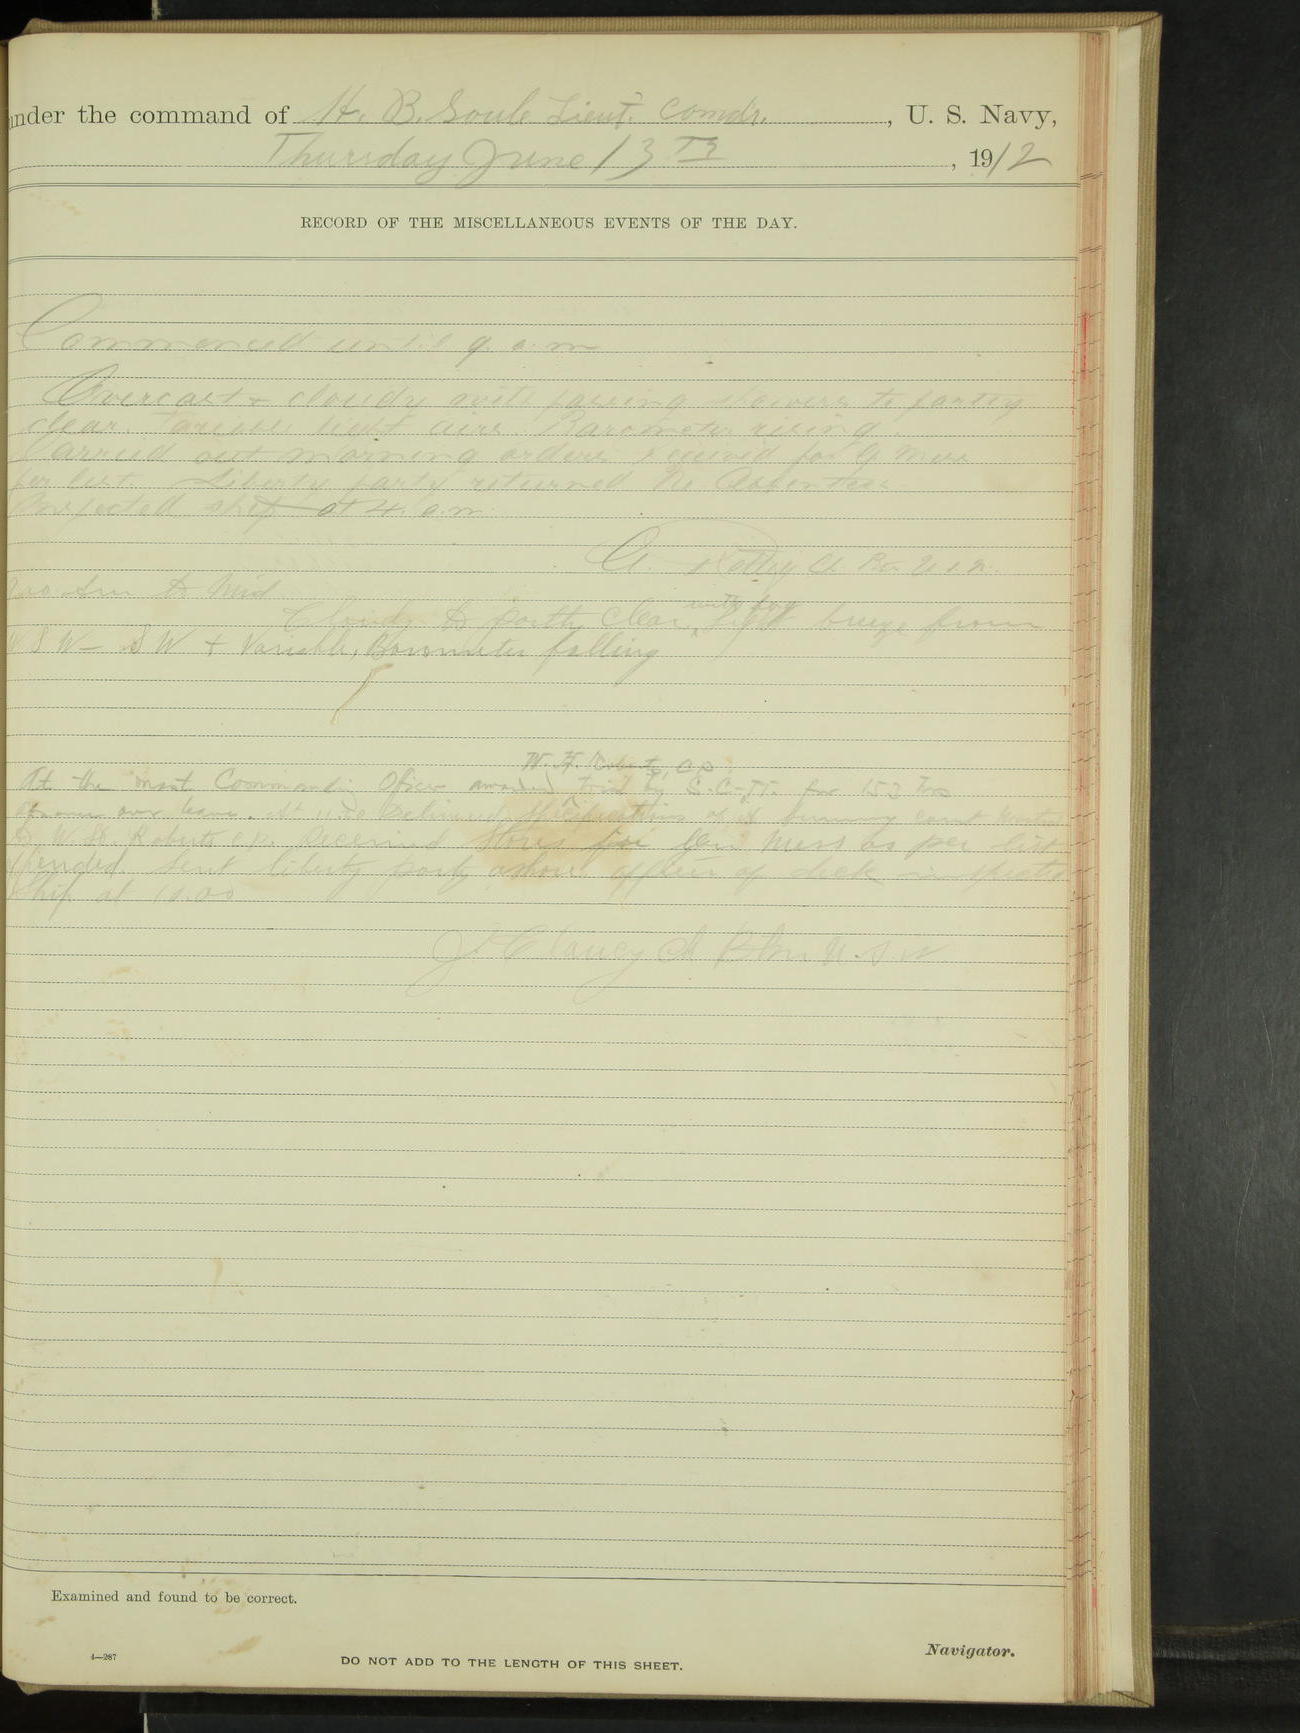 under the command of H. B. Soule Lieut. Comdr. , U. S. Navy,
Thursday June 13 TH , 1912
RECORD OF THE MISCELLANEOUS EVENTS OF THE DAY.
Commenced until 9 a.m
Overcast & cloudy with passing showers to partly
clear. Variable light airs. Barometer rising.
Carried out morning orders received for G Mess
per list. Liberty party returned No Absentees
Inspected ship at 4 a.m.
A. U.S.N.
to Mid
Cloudy to partly clear, with fog light breeze from
W S W - S W & Variable, Barometer falling
W. H. Roberts, C.P.
At the mast Commanding Officer awarded trial by S.C.M. for 153 hrs
over leave. At 11.20 Delivered specifications of a summary court
to W. H. Roberts C.P. Received stores for Gen Mess as per list
appended. Sent liberty party ashore officer of deck inspected
Ship at 10.00
J Clancy U.S.N
Examined and found to be correct.
4—287
DO NOT ADD TO THE LENGTH OF THIS SHEET.
Navigator.